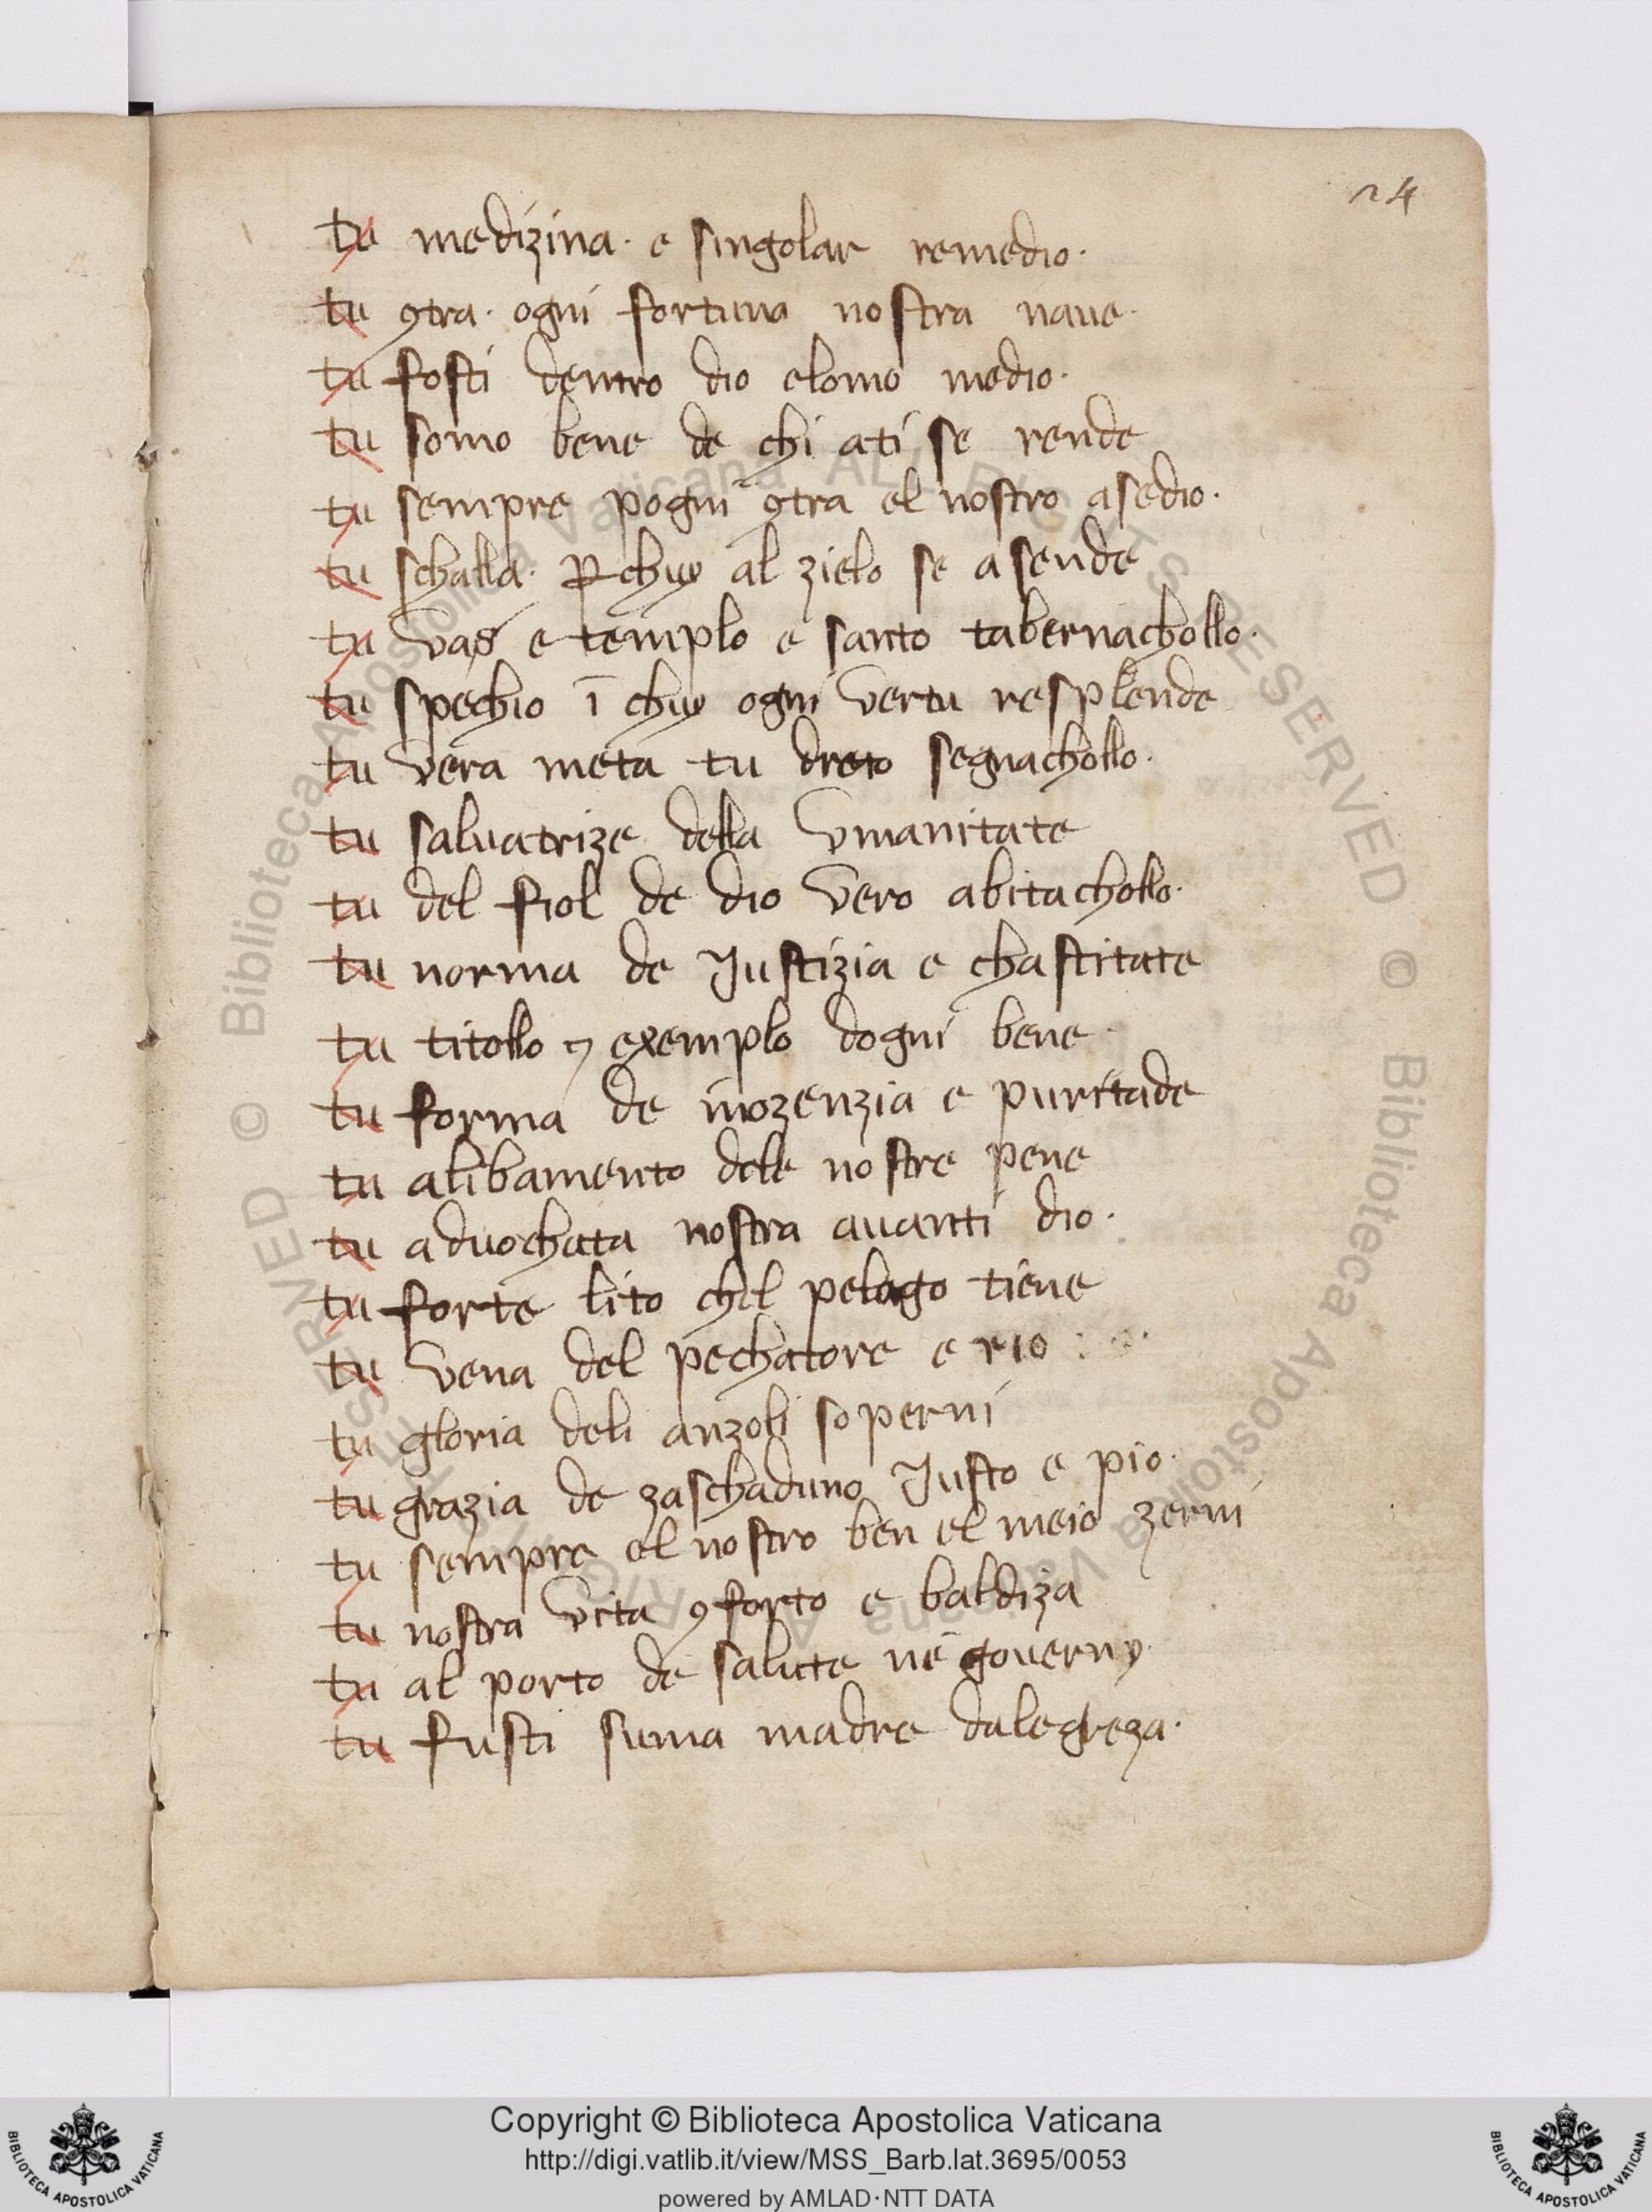 24
tu medizina· e singolar remedio·
tu ꝯtra· ogni fortuna nostra naue·
tu fosti dentro dio elomo medio·
tu somo bene de chi ati se rende
tu sempre pogni ꝯtra el nostro asedio·
tu schalla· ꝑ chuy al zielo se asende
tu vas e templo e santo tabernachollo·
tu spechio ī chuy ogni vertu resplende
tu vera meta tu dreto segnachollo·
tu saluatrize della vmanitate
tu del fiol de dio vero abitachollo·
tu norma de Justizia e chastitate
tu titollo ⁊ exemplo dogni bene·
tu forma de inozenzia e puritade
tu alibamento dele nostre pene
tu aduochata nostra auanti dio·
tu forte lito chel pelago tiene
tu vena del pechatore e rio :
tu gloria deli anzoli soperni
tu grazia de zaschaduno Justo e pio·
tu sempre el nostro ben el meio zerni
tu nostra vita ꝯforto e baldiza
tu al porto de salute ne gouerny·
tu fusti suma madre dalegreza·
© Biblioteca Apostolica Vaticana ALL RIGHTS RESERVED © Biblioteca Apostolica Vaticana ALL RIGHTS RESERVED
Copyright © Biblioteca Apostolica Vaticana
http://digi.vatlib.it/view/MSS_Barb.lat.3695/0053
powered by AMLAD·NTT DATA
BIBLIOTECA APOSTOLICA VATICANA
BIBLIOTECA APOSTOLICA VATICANA